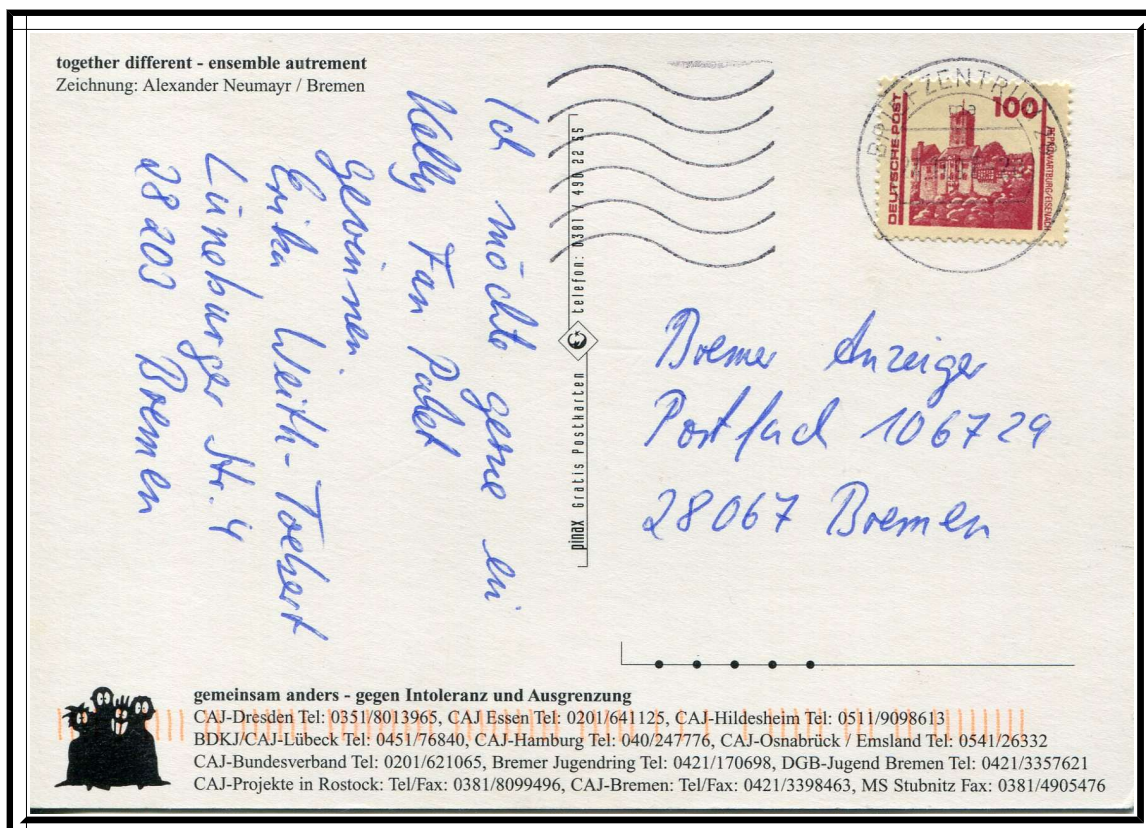 together different - ensemble autrement
Zeichnung: Alexander Neumayr / Bremen
Ich möchte gerne ein
Kelly Fan Paket
gewinnen.
Erika Weith-Toebert
Lüneburger Str. 4
28203 Bremen
pinax Gratis Postkarten
telefon: 0381 / 490 22 55
BRIEFZENTRUM 28
DEUTSCHE POST
100
WARTBURG/EISENACH
Bremer Anzeiger
Postfach 106729
28067 Bremen
gemeinsam anders - gegen Intoleranz und Ausgrenzung
CAJ-Dresden Tel: 0351/8013965, CAJ Essen Tel: 0201/641125, CAJ-Hildesheim Tel: 0511/9098613
BDKJ/CAJ-Lübeck Tel: 0451/76840, CAJ-Hamburg Tel: 040/247776, CAJ-Osnabrück / Emsland Tel: 0541/26332
CAJ-Bundesverband Tel: 0201/621065, Bremer Jugendring Tel: 0421/170698, DGB-Jugend Bremen Tel: 0421/3357621
CAJ-Projekte in Rostock: Tel/Fax: 0381/8099496, CAJ-Bremen: Tel/Fax: 0421/3398463, MS Stubnitz Fax: 0381/4905476